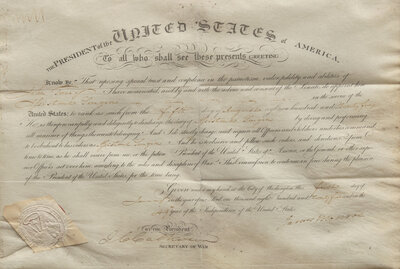 THE PRESIDENT of the UNITED STATES of AMERICA,
To all who shall see these presents GREETING:
Know Ye, That reposing special trust and confidence in the patriotism, valor, fidelity and abilities of
I have nominated, and by and with the advice and consent of the Senate do appoint him
Assistant Surgeon
United States: to rank as such from the
He is therefore carefully and diligently to discharge the duty of Assistant Surgeon by doing and performing
all manner of things thereunto belonging. And I do strictly charge and require all Officers and Soldiers under his command
to be obedient to his orders as Assistant Surgeon. And he is to observe and follow such orders and directions from
time to time as he shall receive from me or the future President of the United States of America or the General or other superior
Officers set over him according to the rules and discipline of War. This Commission to continue in force during the pleasure
of the President of the United States for the time being.
Given under my hand at the City of Washington this
day of in the year of our Lord one thousand eight hundred and and in the
year of the Independence of the United States.
By the President
James Monroe
J C Calhoun
SECRETARY OF WAR